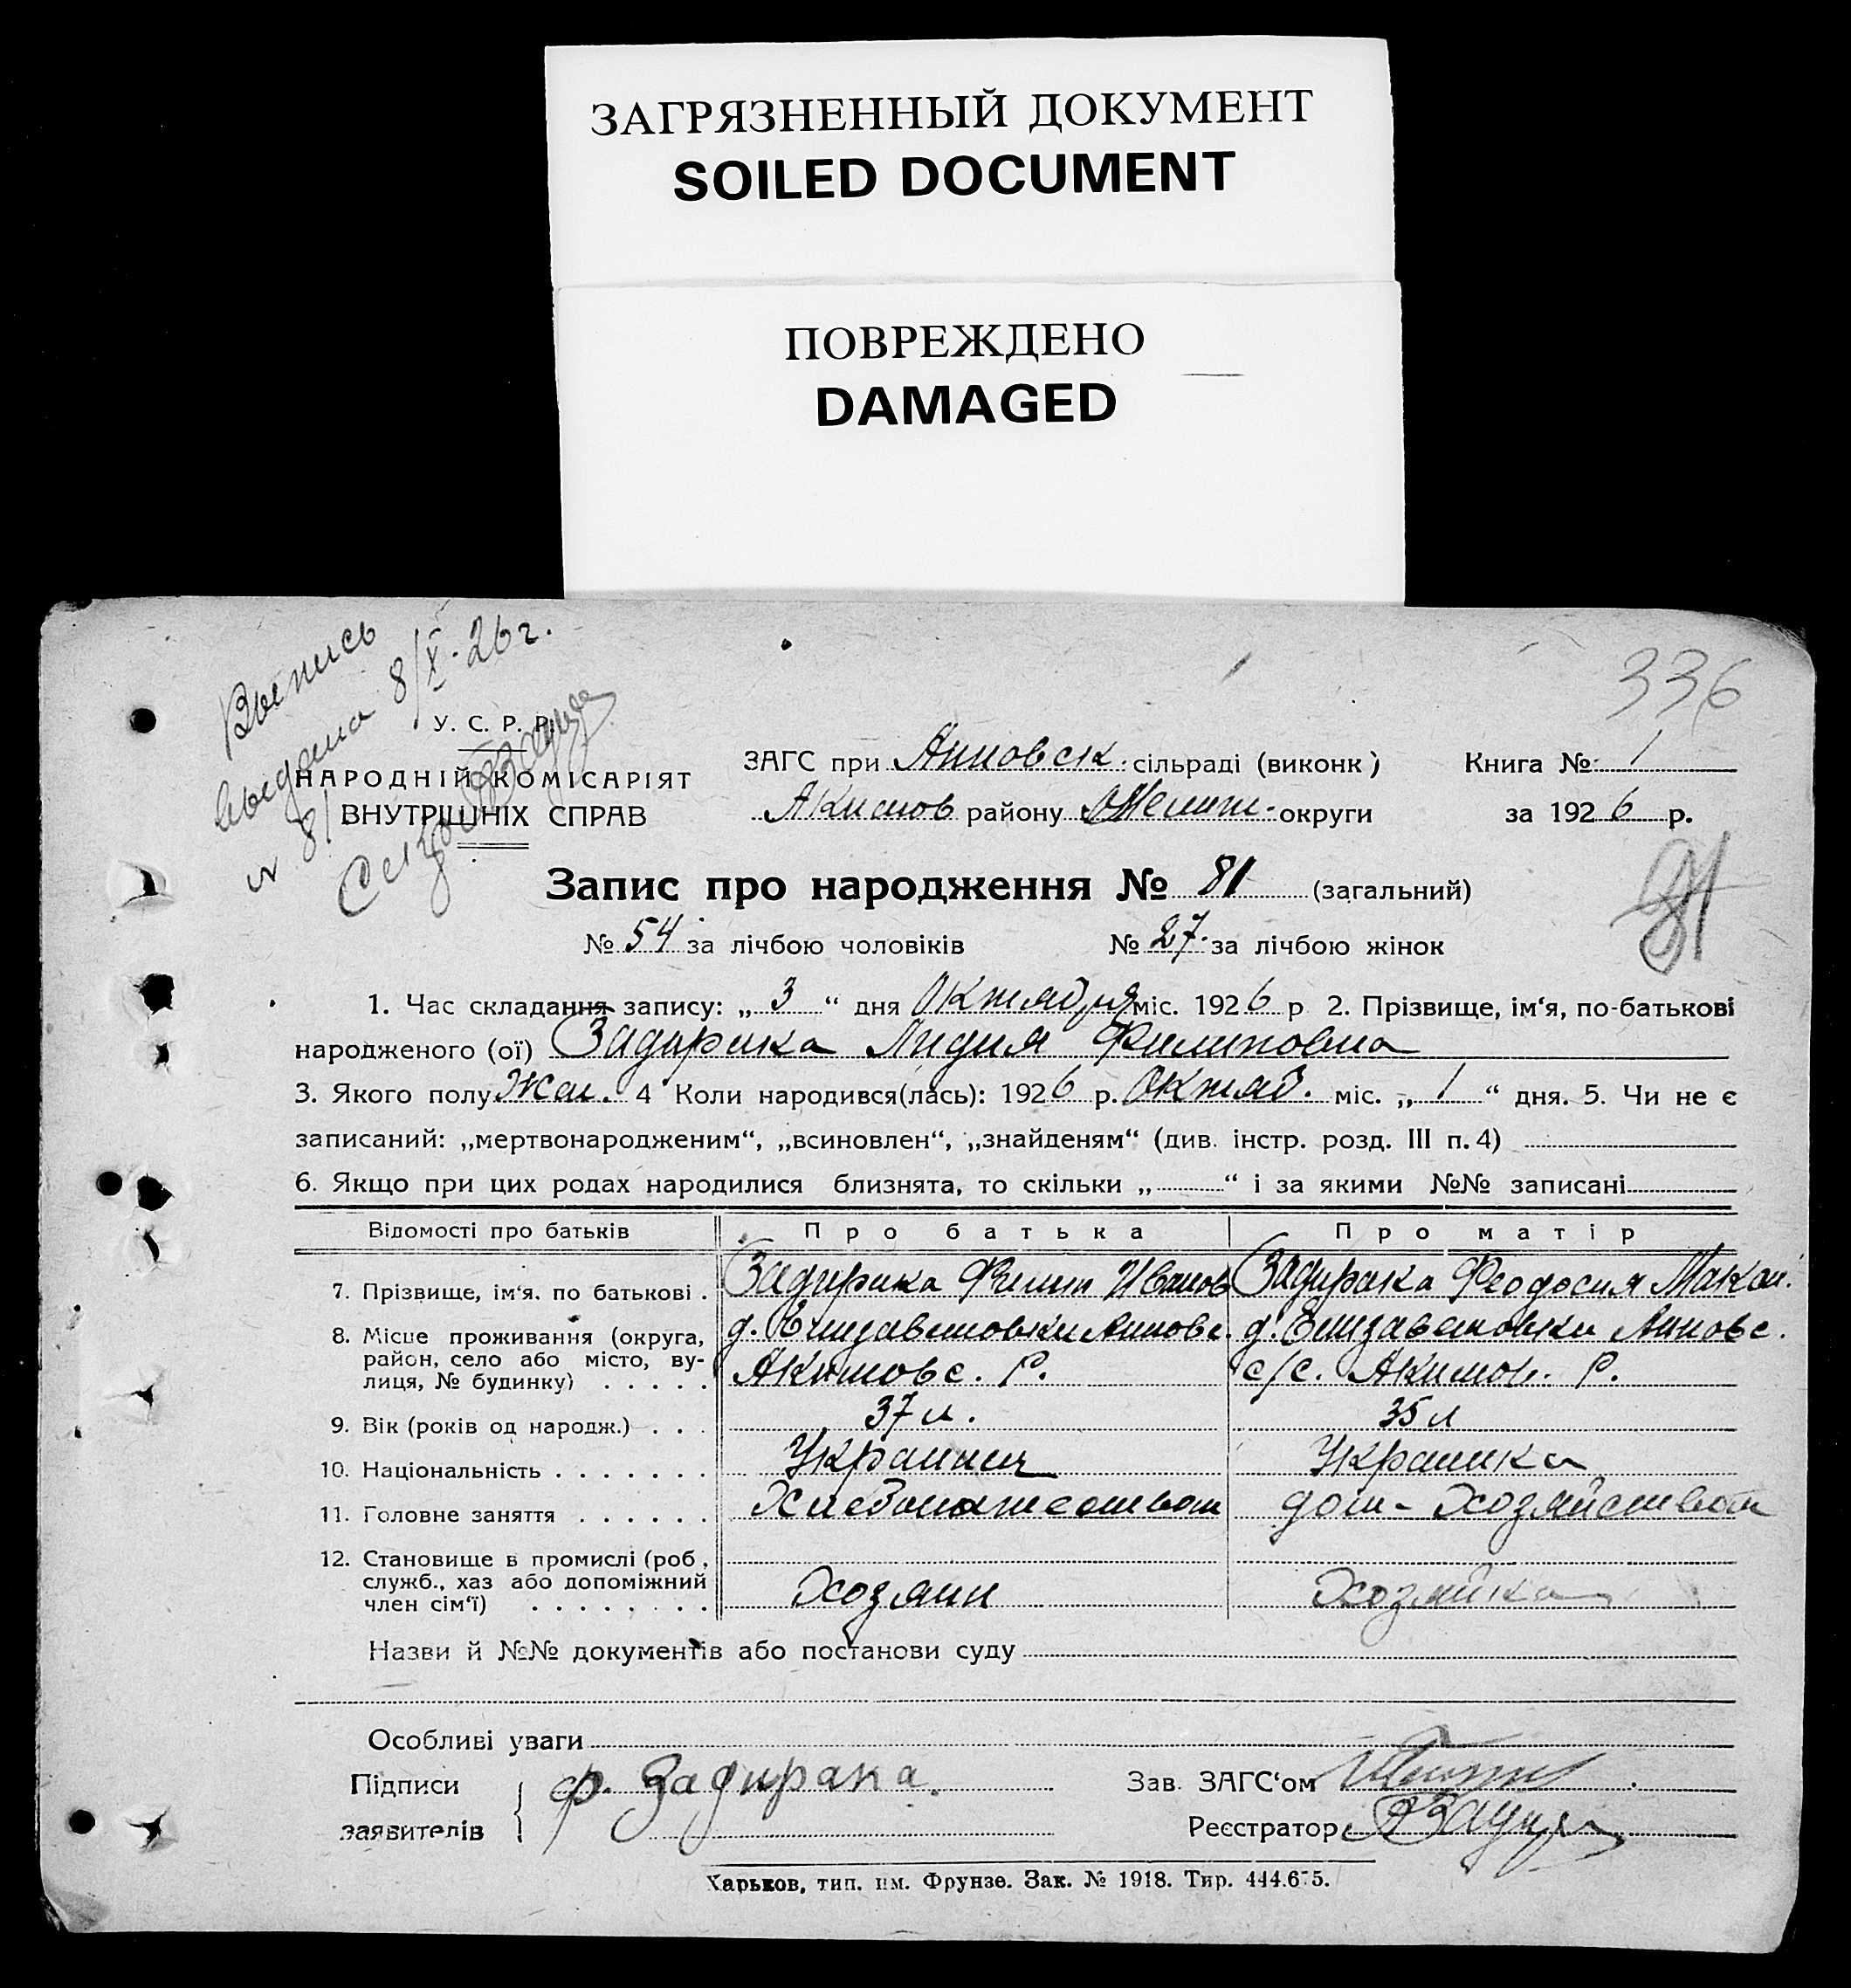 ЗАГРЯЗНЕННЫЙ ДОКУМЕНТ
SOILED DOCUMENT
ПОВРЕЖДЕНО
DAMAGED
Выпись
выдана 8/X-26 г.
№ 81
336
У. С. Р. Р.
НАРОДНІЙ КОМІСАРІЯТ
ВНУТРІШНІХ СПРАВ
ЗАГС при Анновск. сільраді (виконк) Книга № 1
Акимов району Мелит. округи за 1926 р.
Запис про народження № 81 (загальний)
81
№ 54 за лічбою чоловіків № 27. за лічбою жінок
1. Час складання запису: „ 3 “ дня Октября міс. 1926 р 2. Прізвище, ім‘я, по-батькові
народженого (ої) Задирака Лидия Филиповна
3. Якого полу Жен. 4 Коли народився(лась): 1926 р. Октяб. міс. „ 1 “ дня. 5. Чи не є
записаний: „мертвонародженим“, „всиновлен“, „знайденям“ (див. інстр. розд. III п. 4)
6. Якщо при цих родах народилися близнята, то скільки „ “ і за якими №№ записані
Відомості про батьків Про батька Про матір
7. Прізвище, ім‘я. по батькові . Задирака Филип Иванов Задирака Феодосия Макам.
8. Місце проживання (округа, д. Елизаветовки Анновс. д. Елизаветовки Анновс.
район, село або місто, ву-
лиця, № будинку) . . . . . Акимовс. Р. с/с. Акимов. Р.
9. Вік (років од народж.) . . . 37 л. 35 л
10. Національність . . . . . . . Украинец Украинка
11. Головне заняття . . . . . . Хлебопашеством дом-хозяйством
12. Становище в промислі (роб,
служб., хаз або допоміжний Хозяин Хозяйка
член сім‘ї) . . . . . . . .
Назви й №№ документів або постанови суду
Особливі уваги
Підписи ф. Задирака. Зав. ЗАГС‘ом
заявителів Реєстратор
Харьков, тип. им. Фрунзе. Зак. № 1918. Тир. 444.675.